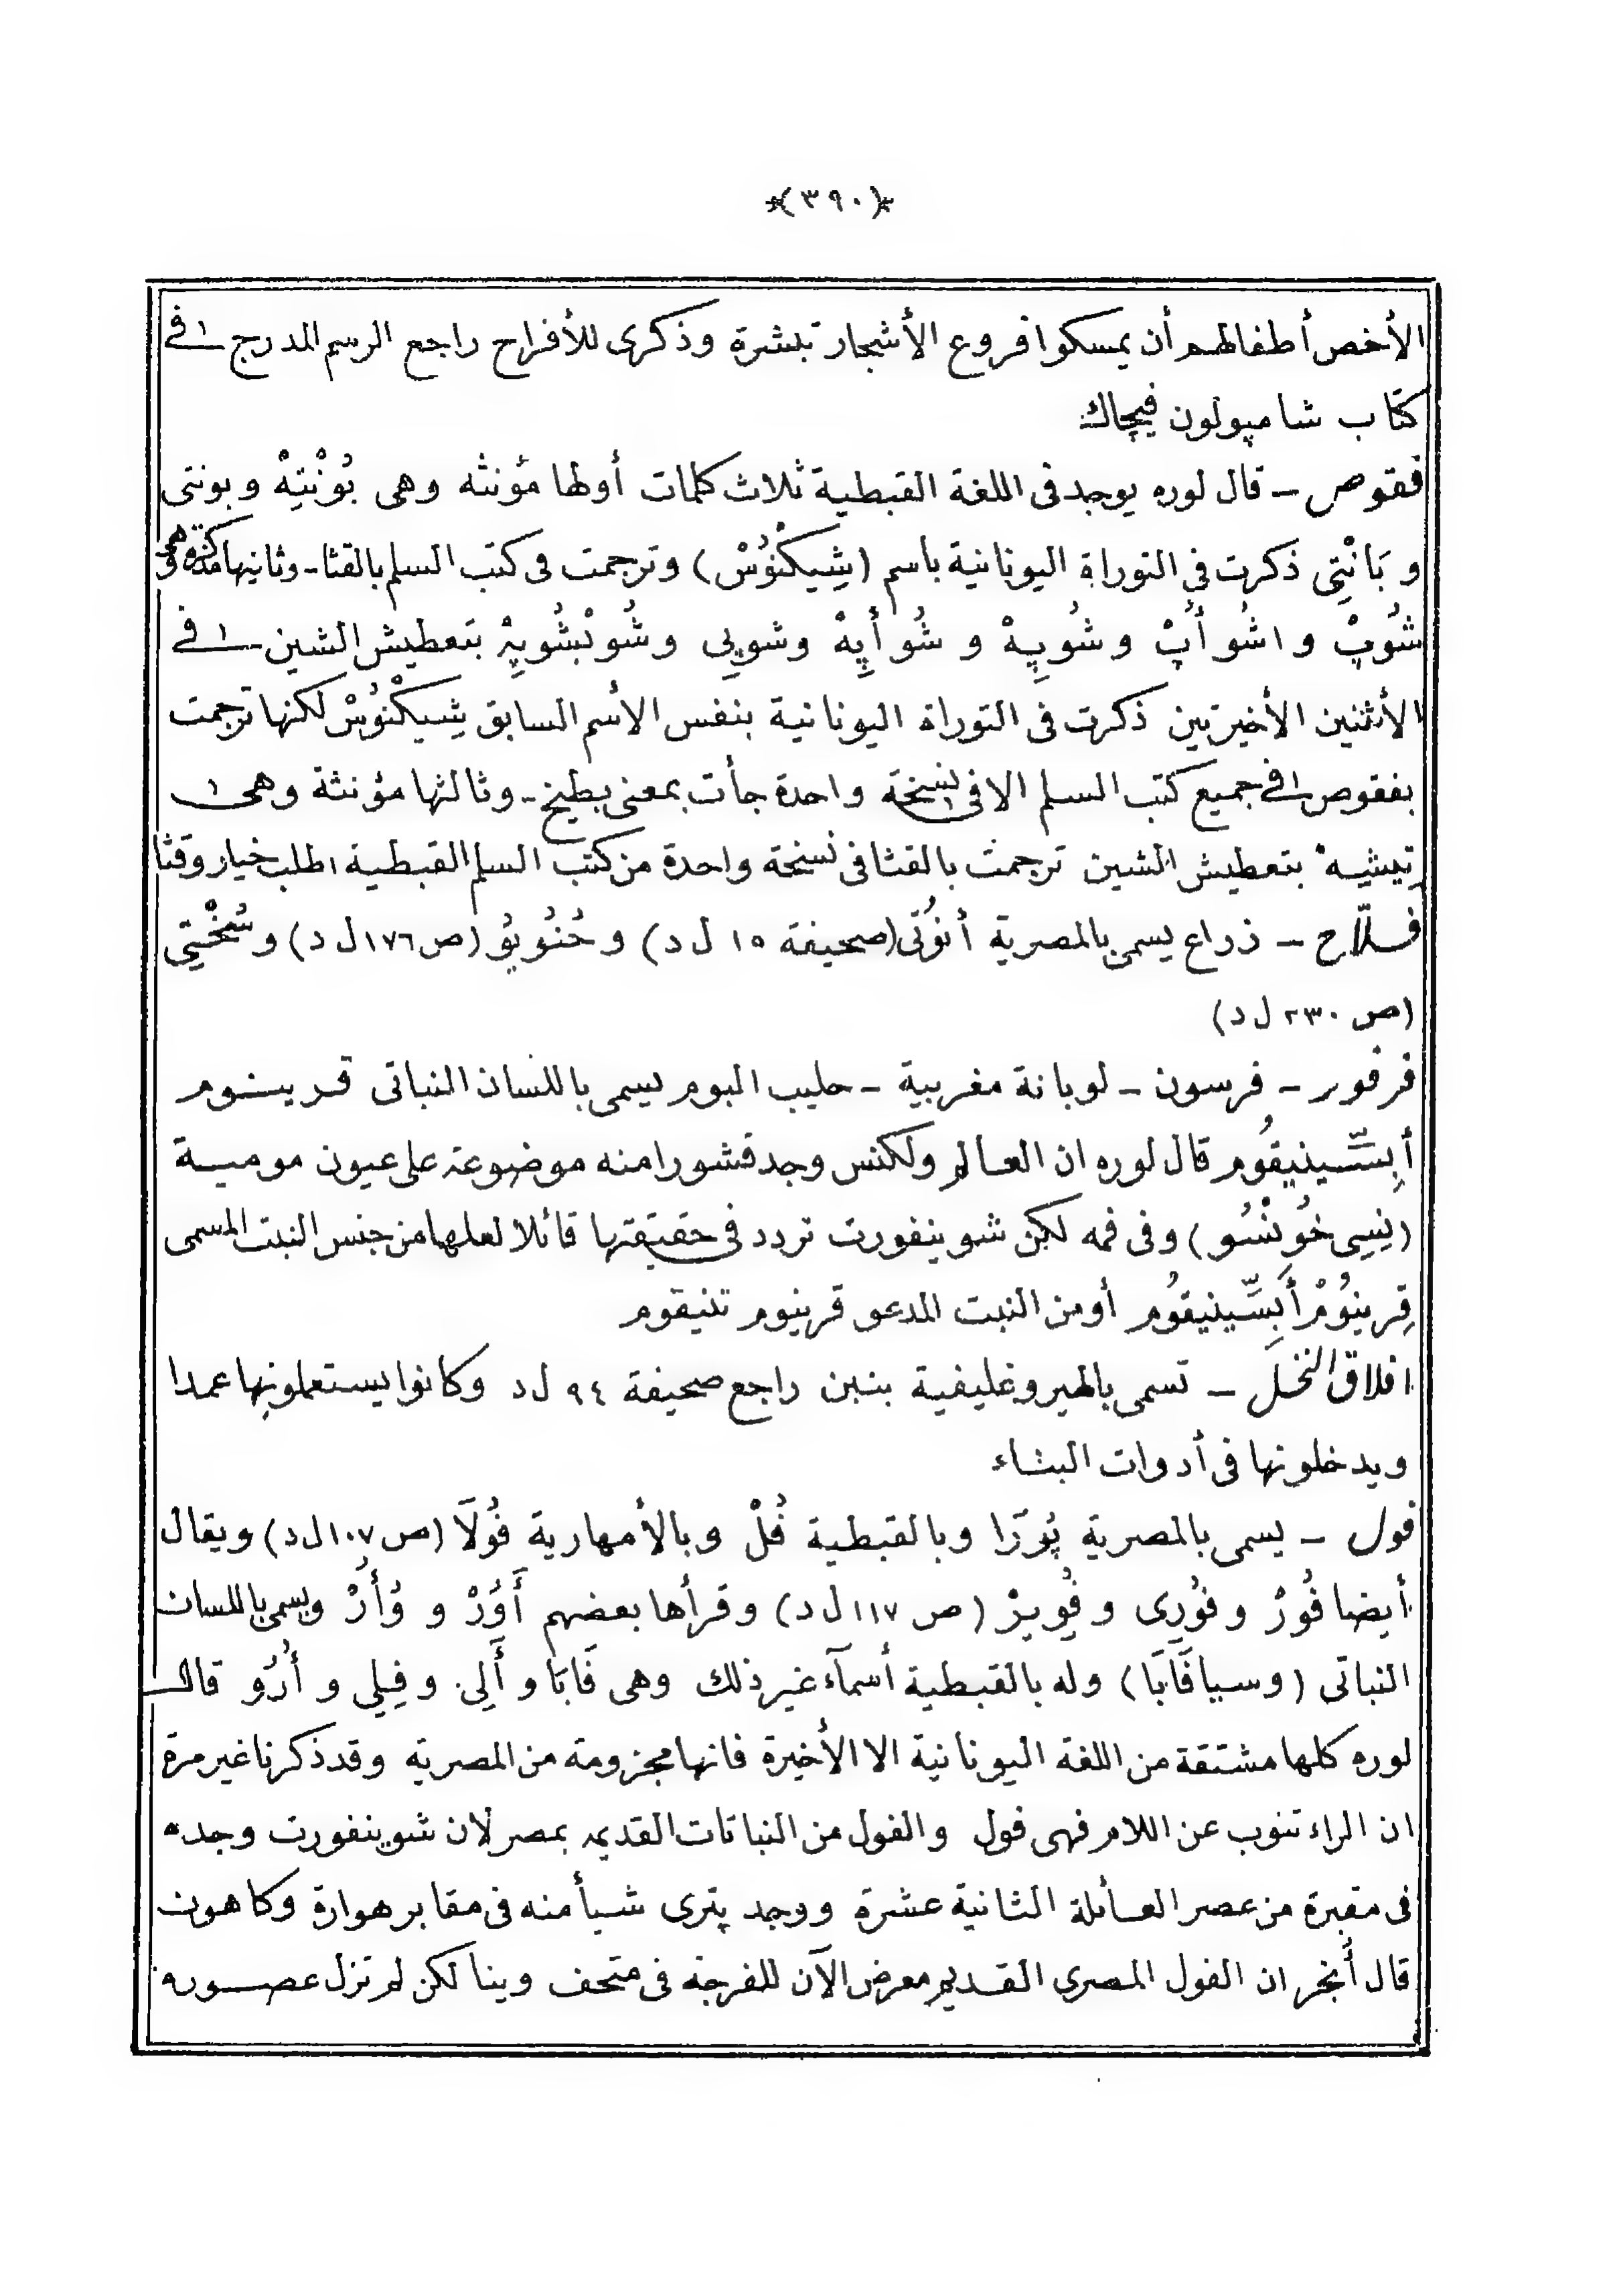 *(٣٩٠)*
الأخص أطفالهم أن يمسكوا فروع الأشجار تبشرة وذكرى للأفراح راجع الرسم المدرج فى
كتاب شامپولون فيچاك
فقوص - قال لوره يوجد فى اللغة القبطية ثلاث كلمات أولها مؤنثه وهى بُونْتِهْ وبونتى
و بَانْتِى ذكرت فى التوراة اليونانية باسم (شِيكْنُوسْ) وترجمت فى كتب السلم بالقثا - وثانيها مذكره وهى
شُوپْ و اشُوأُپْ و شُوپِهْ و شُوأَپِهْ وشوپِى وشُونْبشُوپِهْ بتعطيش الشين فى
الأثنين الأخيرتين ذكرت فى التوراة اليونانية بنفس الأسم السابق شِيكْنُوسْ لكنها ترجمت
بفقوص فى جميع كتب السلم الا فى نسخة واحدة جأت بمعنى بطيخ - وثالثها مؤنثة وهى
تِيشِيهْ بتعطيش الشين ترجمت بالقثا فى نسخة واحدة من كتب السلم القبطية اطلب خيار وقثا
فلّاح - ذراع يسمى بالمصرية أنوُتى (صحيفة ١٥ ل د) و حُنُوبُو (ص ١٧٦ ل د) و سُخْتِى
(ص ٢٣٠ ل د)
فرفور - فرسون - لوبانة مغربية - حليب البوم يسمى باللسان النباتى قرينوم
أبِسِّينيقُوم قال لوره ان العالم ولكنس وجد قشورا منه موضوعة على عيون مومية
(نِسِى خُونْسُو) وفى فمه لكن شوينفورت تردد فى حقيقتها قائلا لعلها من جنس النبت المسمى
قِرينُومْ أَبِسِّينيقُوم أومن النبت المدعو قرينوم تنيقوم
افلاق النخل - تسمى بالهيروغليفية بنبن راجع صحيفة ٩٤ ل د وكانوا يستعملونها عمدا
ويدخلونها فى أدوات البناء
فول - يسمى بالمصرية پُورَا وبالقبطية فُلْ وبالأمهارية فُولَا (ص ١٠٧ ل د) ويقال
أيضا فُورْ و فُورِى و فُوپِرْ (ص ١١٧ ل د) وقرأها بعضهم أَوُرْ و وُأَرْ ويسمى باللسان
النباتى (وسيا فَابَا) وله بالقبطية أسمآء غير ذلك وهى فَابَا و أَلِى و فِلِى و أُرُو قال
لوره كلها مشتقة من اللغة اليونانية الا الأخيرة فانها مجزومة من المصرية وقد ذكرنا غير مرة
ان الراء تنوب عن اللام فهى فول والفول من النباتات القديمه بمصر لان شوينفورت وجده
فى مقبرة من عصر العائلة الثانية عشرة ووجد پترى شيأ منه فى مقابر هوارة وكاهون
قال أنجر ان الفول المصرى القديم معرض الآن للفرجة فى متحف وينا لكن لم تزل عصوره